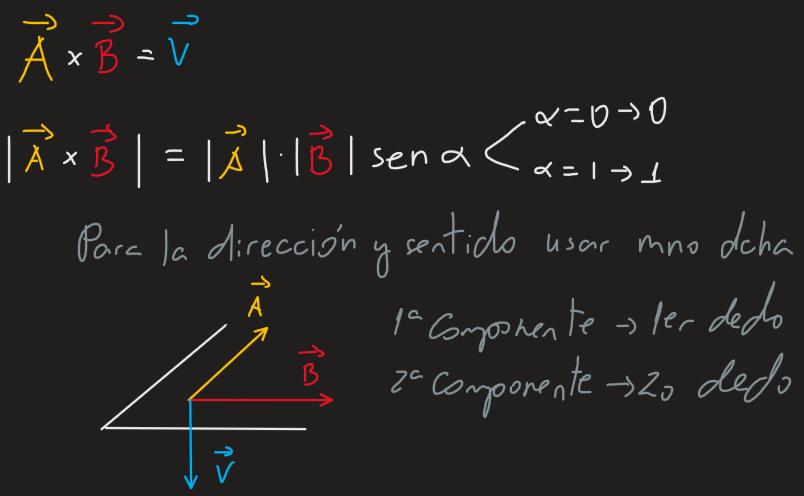 A⃗ × B⃗ = V⃗
|A⃗ × B⃗| = |A⃗|·|B⃗| sen α
α=0→0
α=1→1
Para la dirección y sentido usar mno dcha
1ª Componente → 1er dedo
2ª Componente → 2o dedo
A⃗
B⃗
V⃗